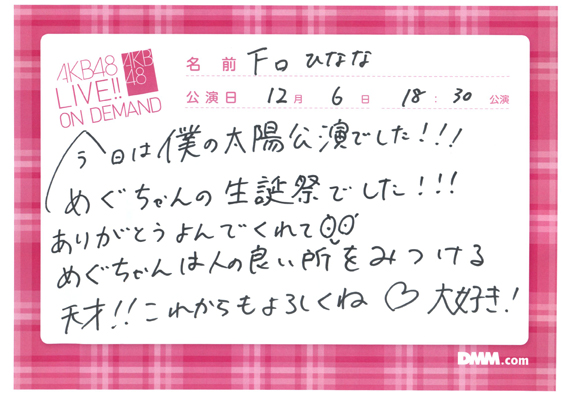 AKB48
LIVE!!
ON DEMAND
AKB
48
名前 下口ひなな
公演日 12月 6日 18:30 公演
今日は僕の太陽公演でした!!!
めぐちゃんの生誕祭でした!!!
ありがとうよんでくれて
めぐちゃんは人の良い所をみつける
天才!!これからもよろしくね♡大好き!
DMM.com